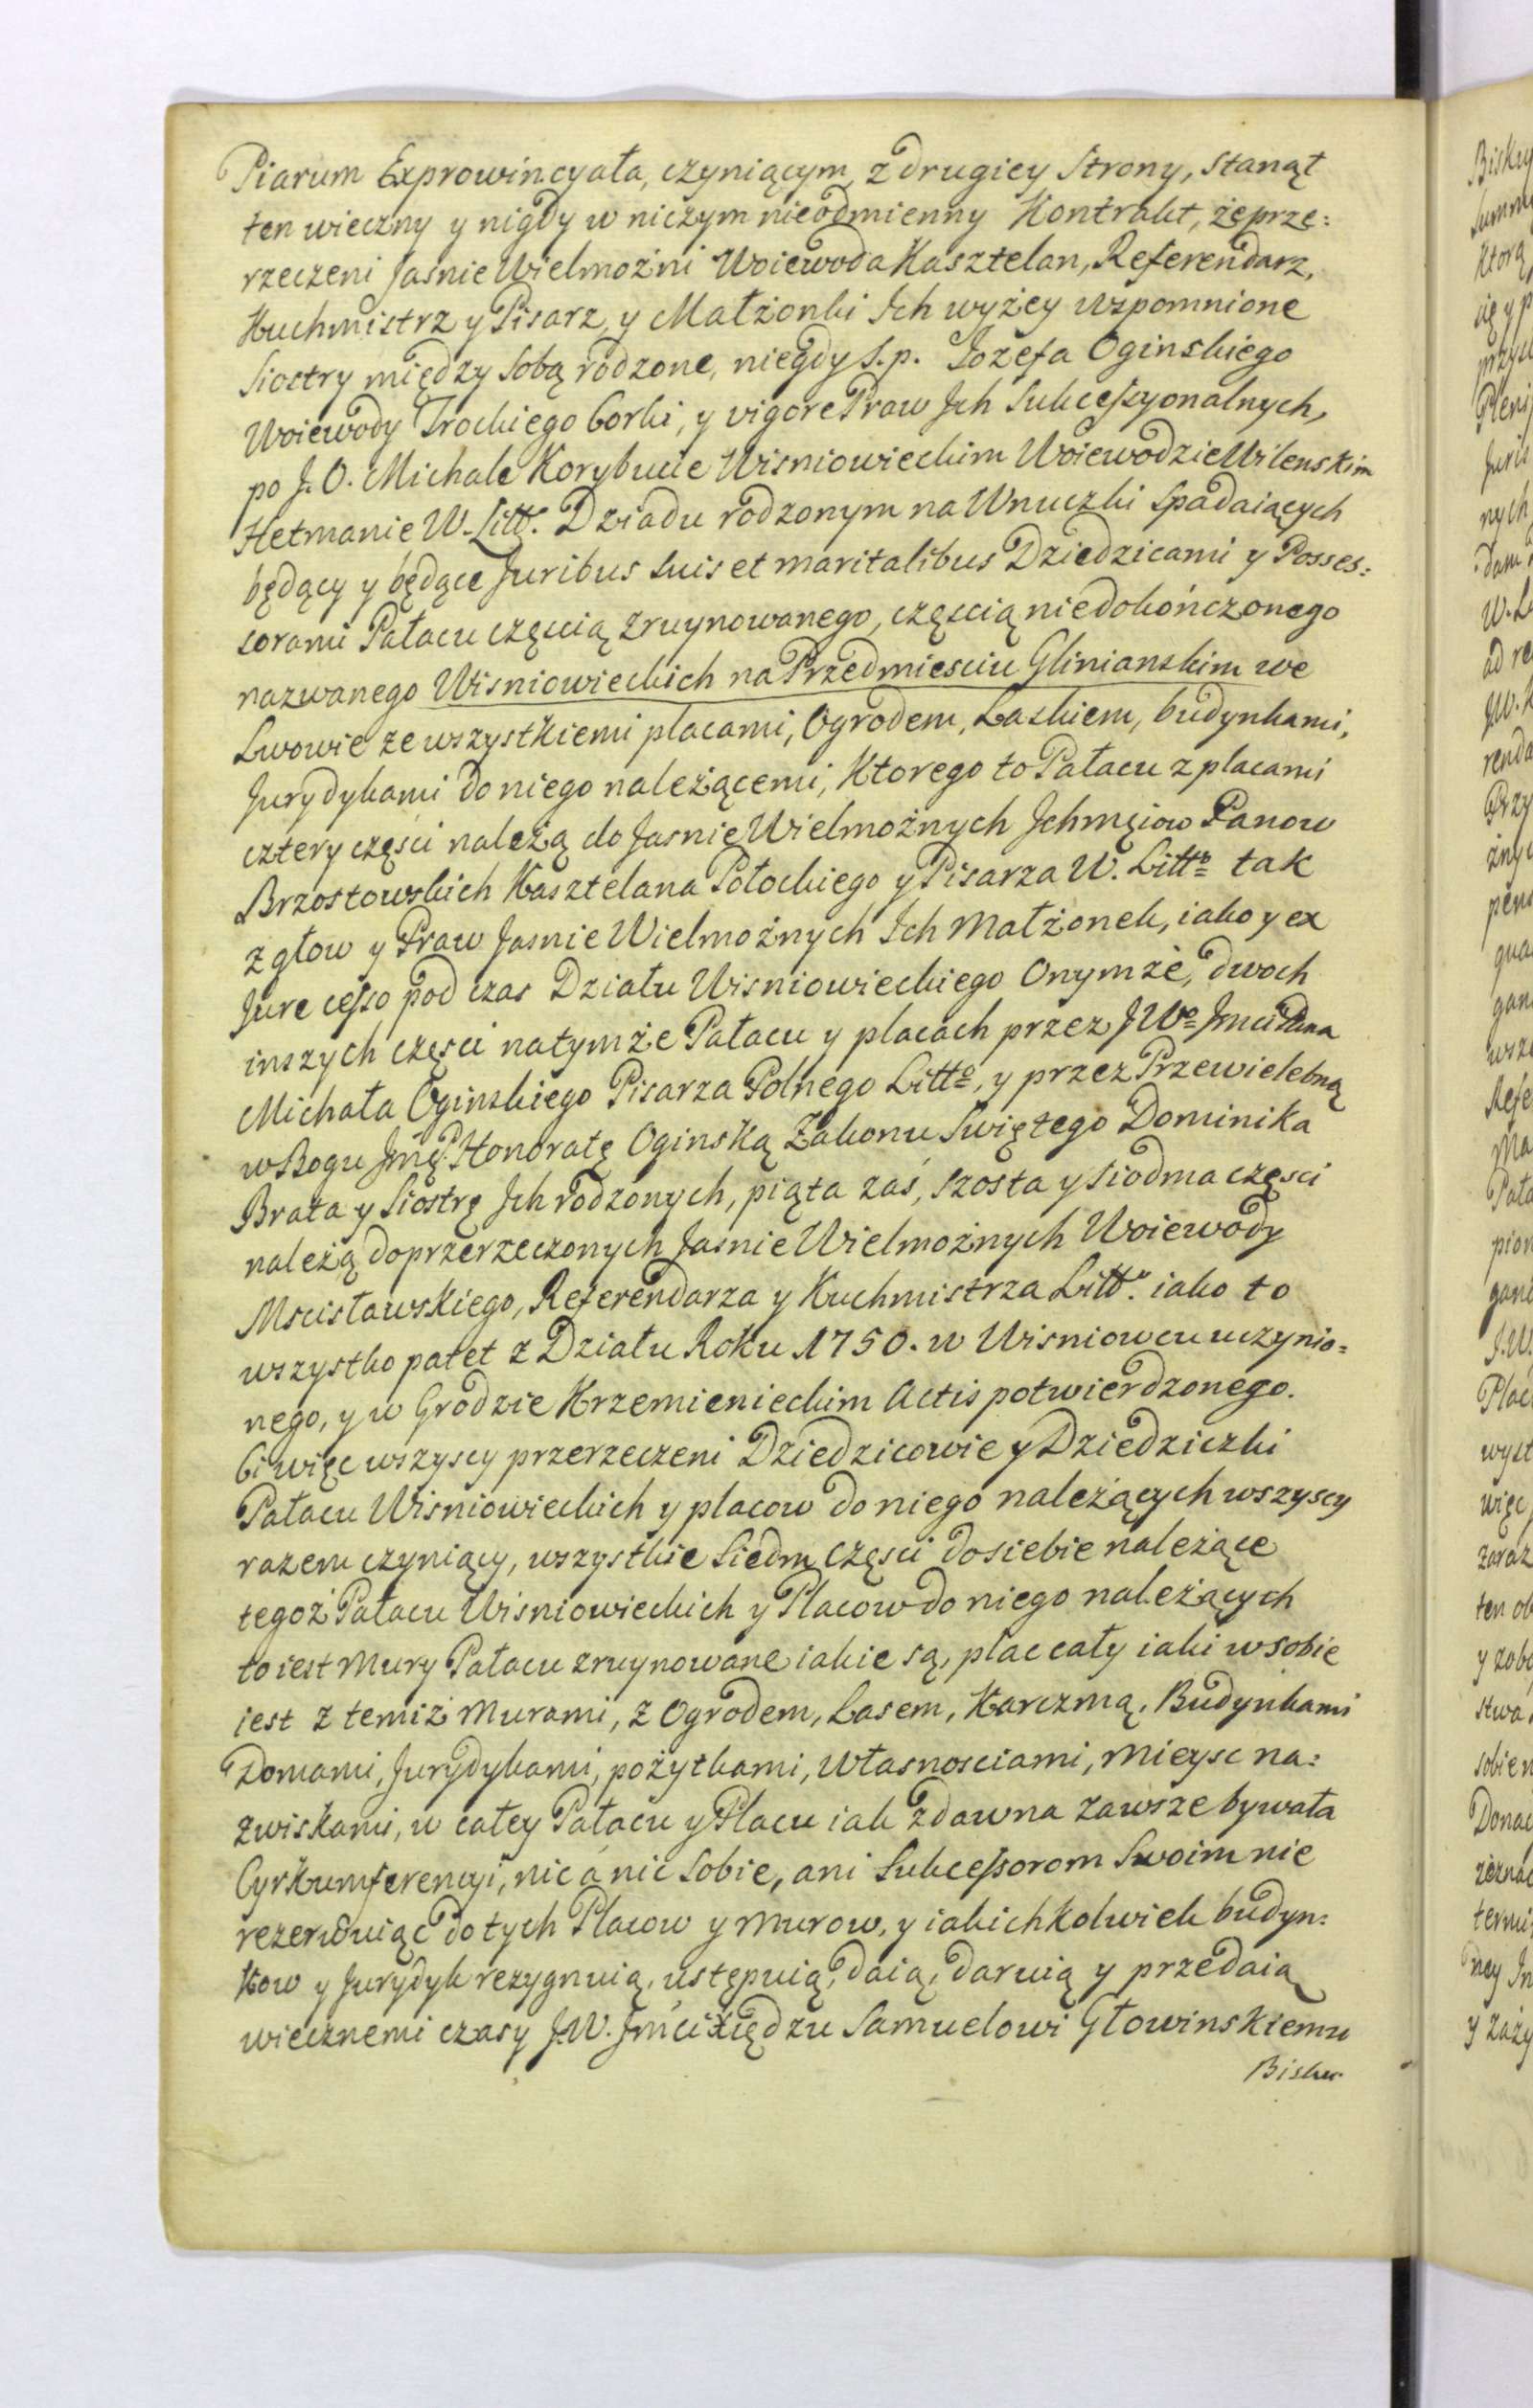 Piarum Exprowincyała, czyniącym z drugiey Strony, stanął
ten wieczny y nigdy w niczym nieodmienny Kontrakt, że prze:
rzeczeni Jasnie Wielmożni Woiewoda Kasztelan, Referendarz,
Kuchmistrz y Pisarz, y Małżonki Jch wyżey wspomnione
Siostry między Sobą rodzone, niegdy S.p. Jozefa Oginskiego
Woiewody Trockiego Corki, y vigore Praw Jch Sukcessyonalnych,
po J. O. Michale Korybucie Wisniowieckim Woiewodzie Wilenskim
Hetmanie W. Litt. Dziadu rodzonym na Wnuczki Spadaiących
będący y będące Juribus suis et maritalibus Dziedzicami y Posses:
sorami Pałacu częscią zruynowanego, częscią niedokończonego
nazwanego Wisniowieckich na Przedmiesciu Glinianskim we
Lwowie ze wszystkiemi placami, Ogrodem, Laskiem, budynkami,
Jurydykami do niego należącemi, Ktorego to Pałacu z placami
cztery częsci należą do Jasnie Wielmożnych Jchmciow Panow
Brzostowskich Kasztelana Połockiego y Pisarza W. Litto tak
z głow y Praw Jasnie Wielmożnych Jch Małżonek, iako y ex
Jure cesso pod czas Działu Wisniowieckiego Onymże, dwoch
inszych częsci na tymże Pałacu y placach przez JWo Jmci Pana
Michała Oginskiego Pisarza Polnego Litto, y przez Przewielebną
w Bogu Jmę P. Honoratę Oginską Zakonu Swiętego Dominika
Brata y Siostrę Jch rodzonych, piąta zaś, szosta y siodma częsci
należą do przerzeczonych Jasnie Wielmożnych Woiewody
Mscisławskiego, Referendarza y Kuchmistrza Litto. iako to
wszystko patet z Działu Roku 1750. w Wisniowcu uczynio=
nego, y w Grodzie Krzemienieckim Actis potwierdzonego.
Ci więc wszyscy przerzeczeni Dziedzicowie y Dziedziczki
Pałacu Wisniowieckich y placow do niego należących wszyscy
razem czyniący, wszystkie Siedm Częsci do siebie należące
tegoż Pałacu Wisniowieckich y Placow do niego należących
to iest Mury Pałacu zruynowane iakie są, plac cały iaki w sobie
iest z temiż Murami, z Ogrodem, Lasem, Karczmą, Budynkami
Domami, Jurydykami, pożytkami, Własnosciami, Mieysc na:
zwiskami, w całey Pałacu y Placu iak zdawna zawsze bywała
Cyrkumferencyi, nic á nic Sobie, ani Sukcessorom Swoim nie
rezerwuiąc do tych Placow y Murow, y iakichkolwiek budyn:
kow y Jurydyk rezygnuią, ustępuią, daią, daruią y przedaią
wiecznemi czasy J.W. Jmci Xiędzu Samuelowi Głowinskiemu
Bisku